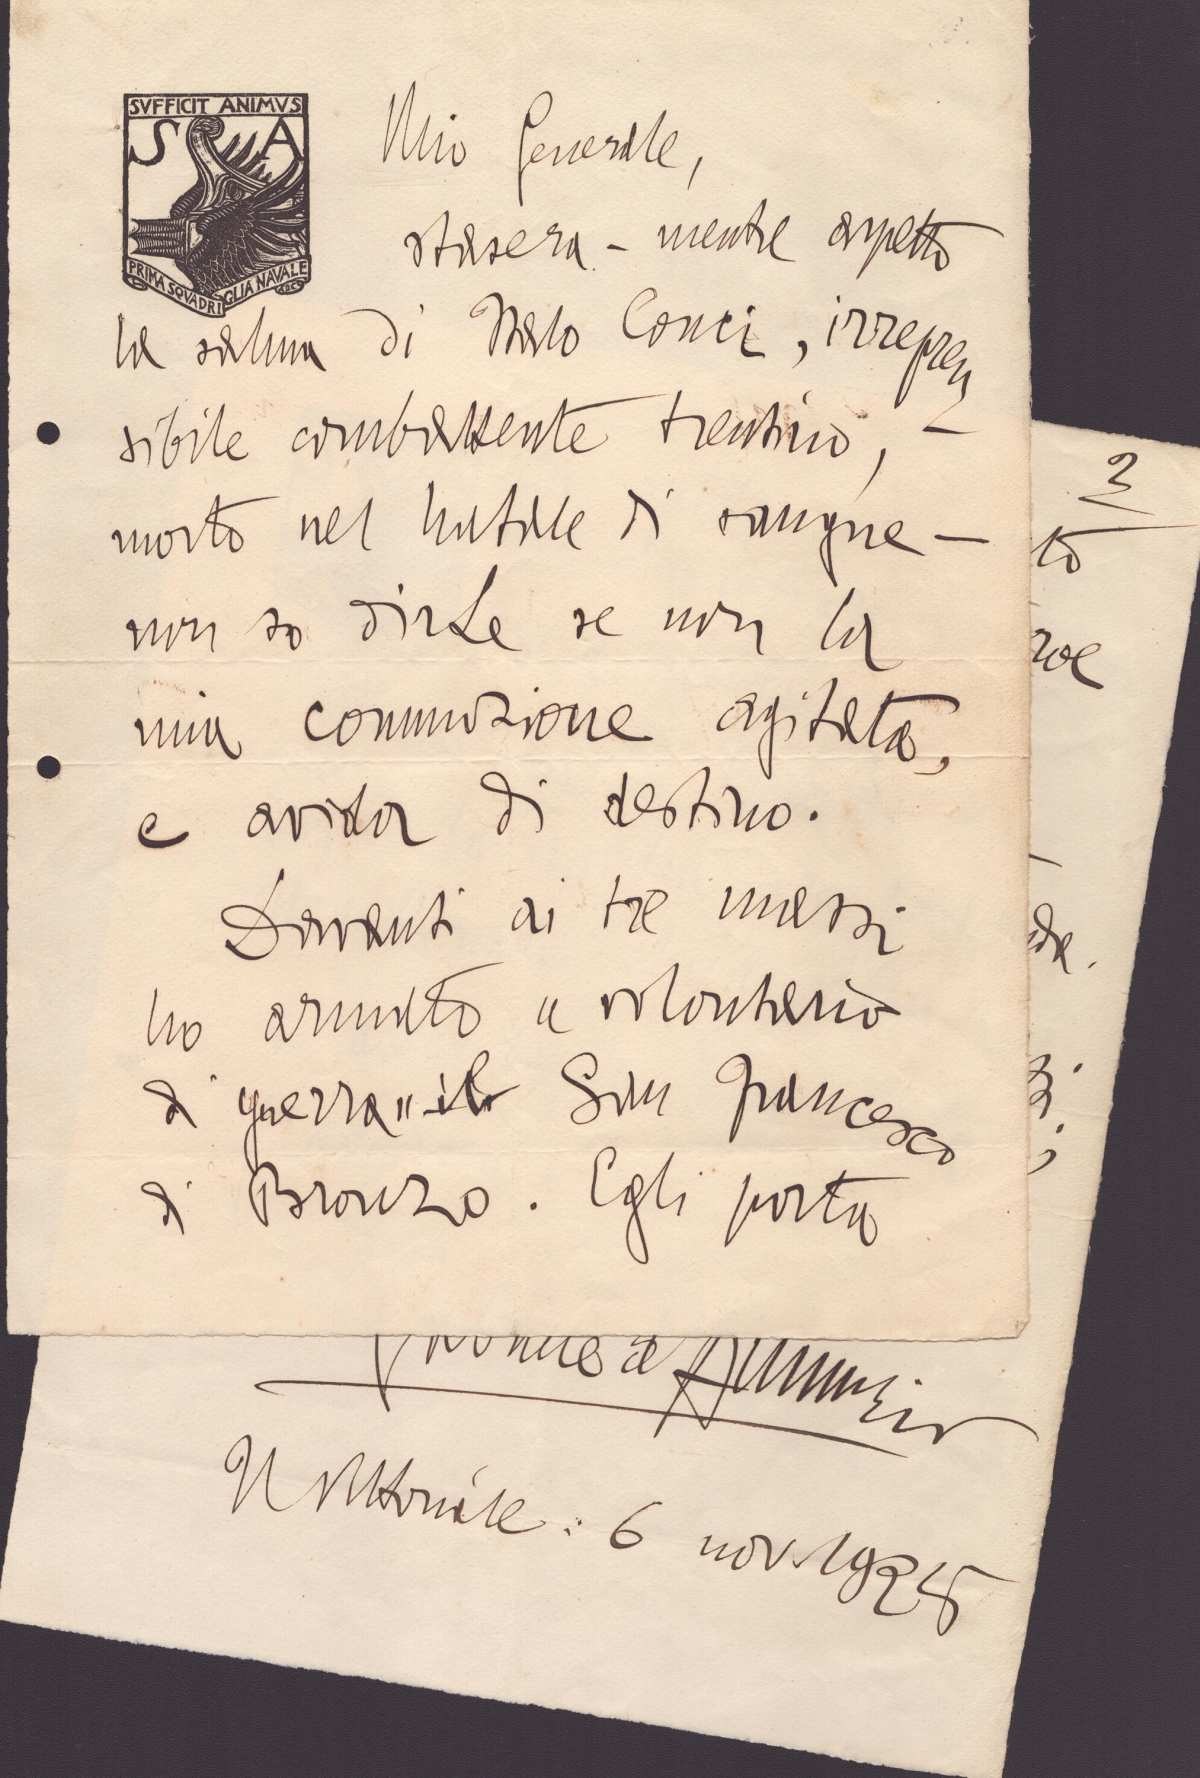 SVFFICIT ANIMVS
S A
PRIMA SQVADRIGLIA NAVALE
Mio Generale,
stasera - mentre aspetto
la salma di Italo Conci, irrepren
sibile combattente trentino, -
morto nel Natale di sangue -
non so dirLe se non la
mia commozione agitata,
e avida di destino.
Davanti ai tre massi
ho armato "volontario
di guerra" il San Francesco
di Bronzo. Egli porta
3
to
roe
Gabriele d'Annunzio
Il Vittoriale: 6 nov. 1925